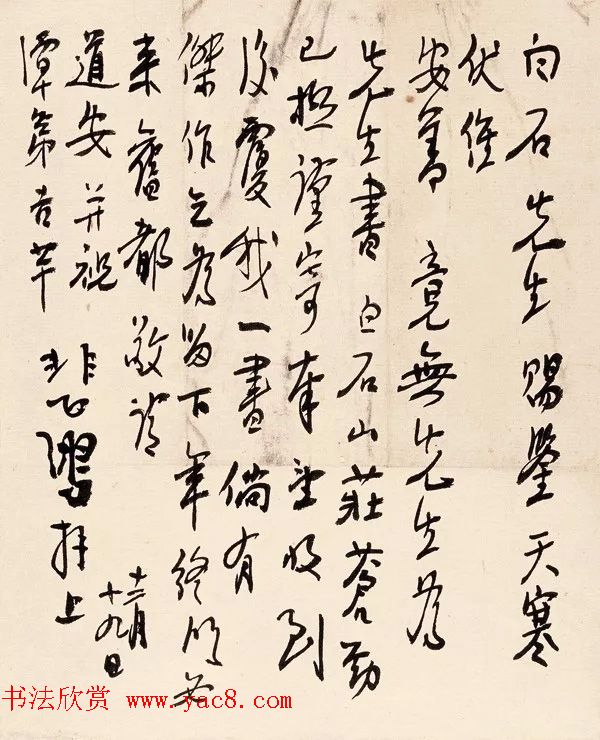 白石先生賜鑒天寒
伏惟
安善 竟無先生為
先生書白石山莊蒼勁
已極謹寄奉望收到
後覆我一書倘有
傑作乞為留百年終必
來舊都敬請
道安并祝
潭第吉羊
悲鴻拜上
十二月
十九日
书法欣赏 www.yac8.com